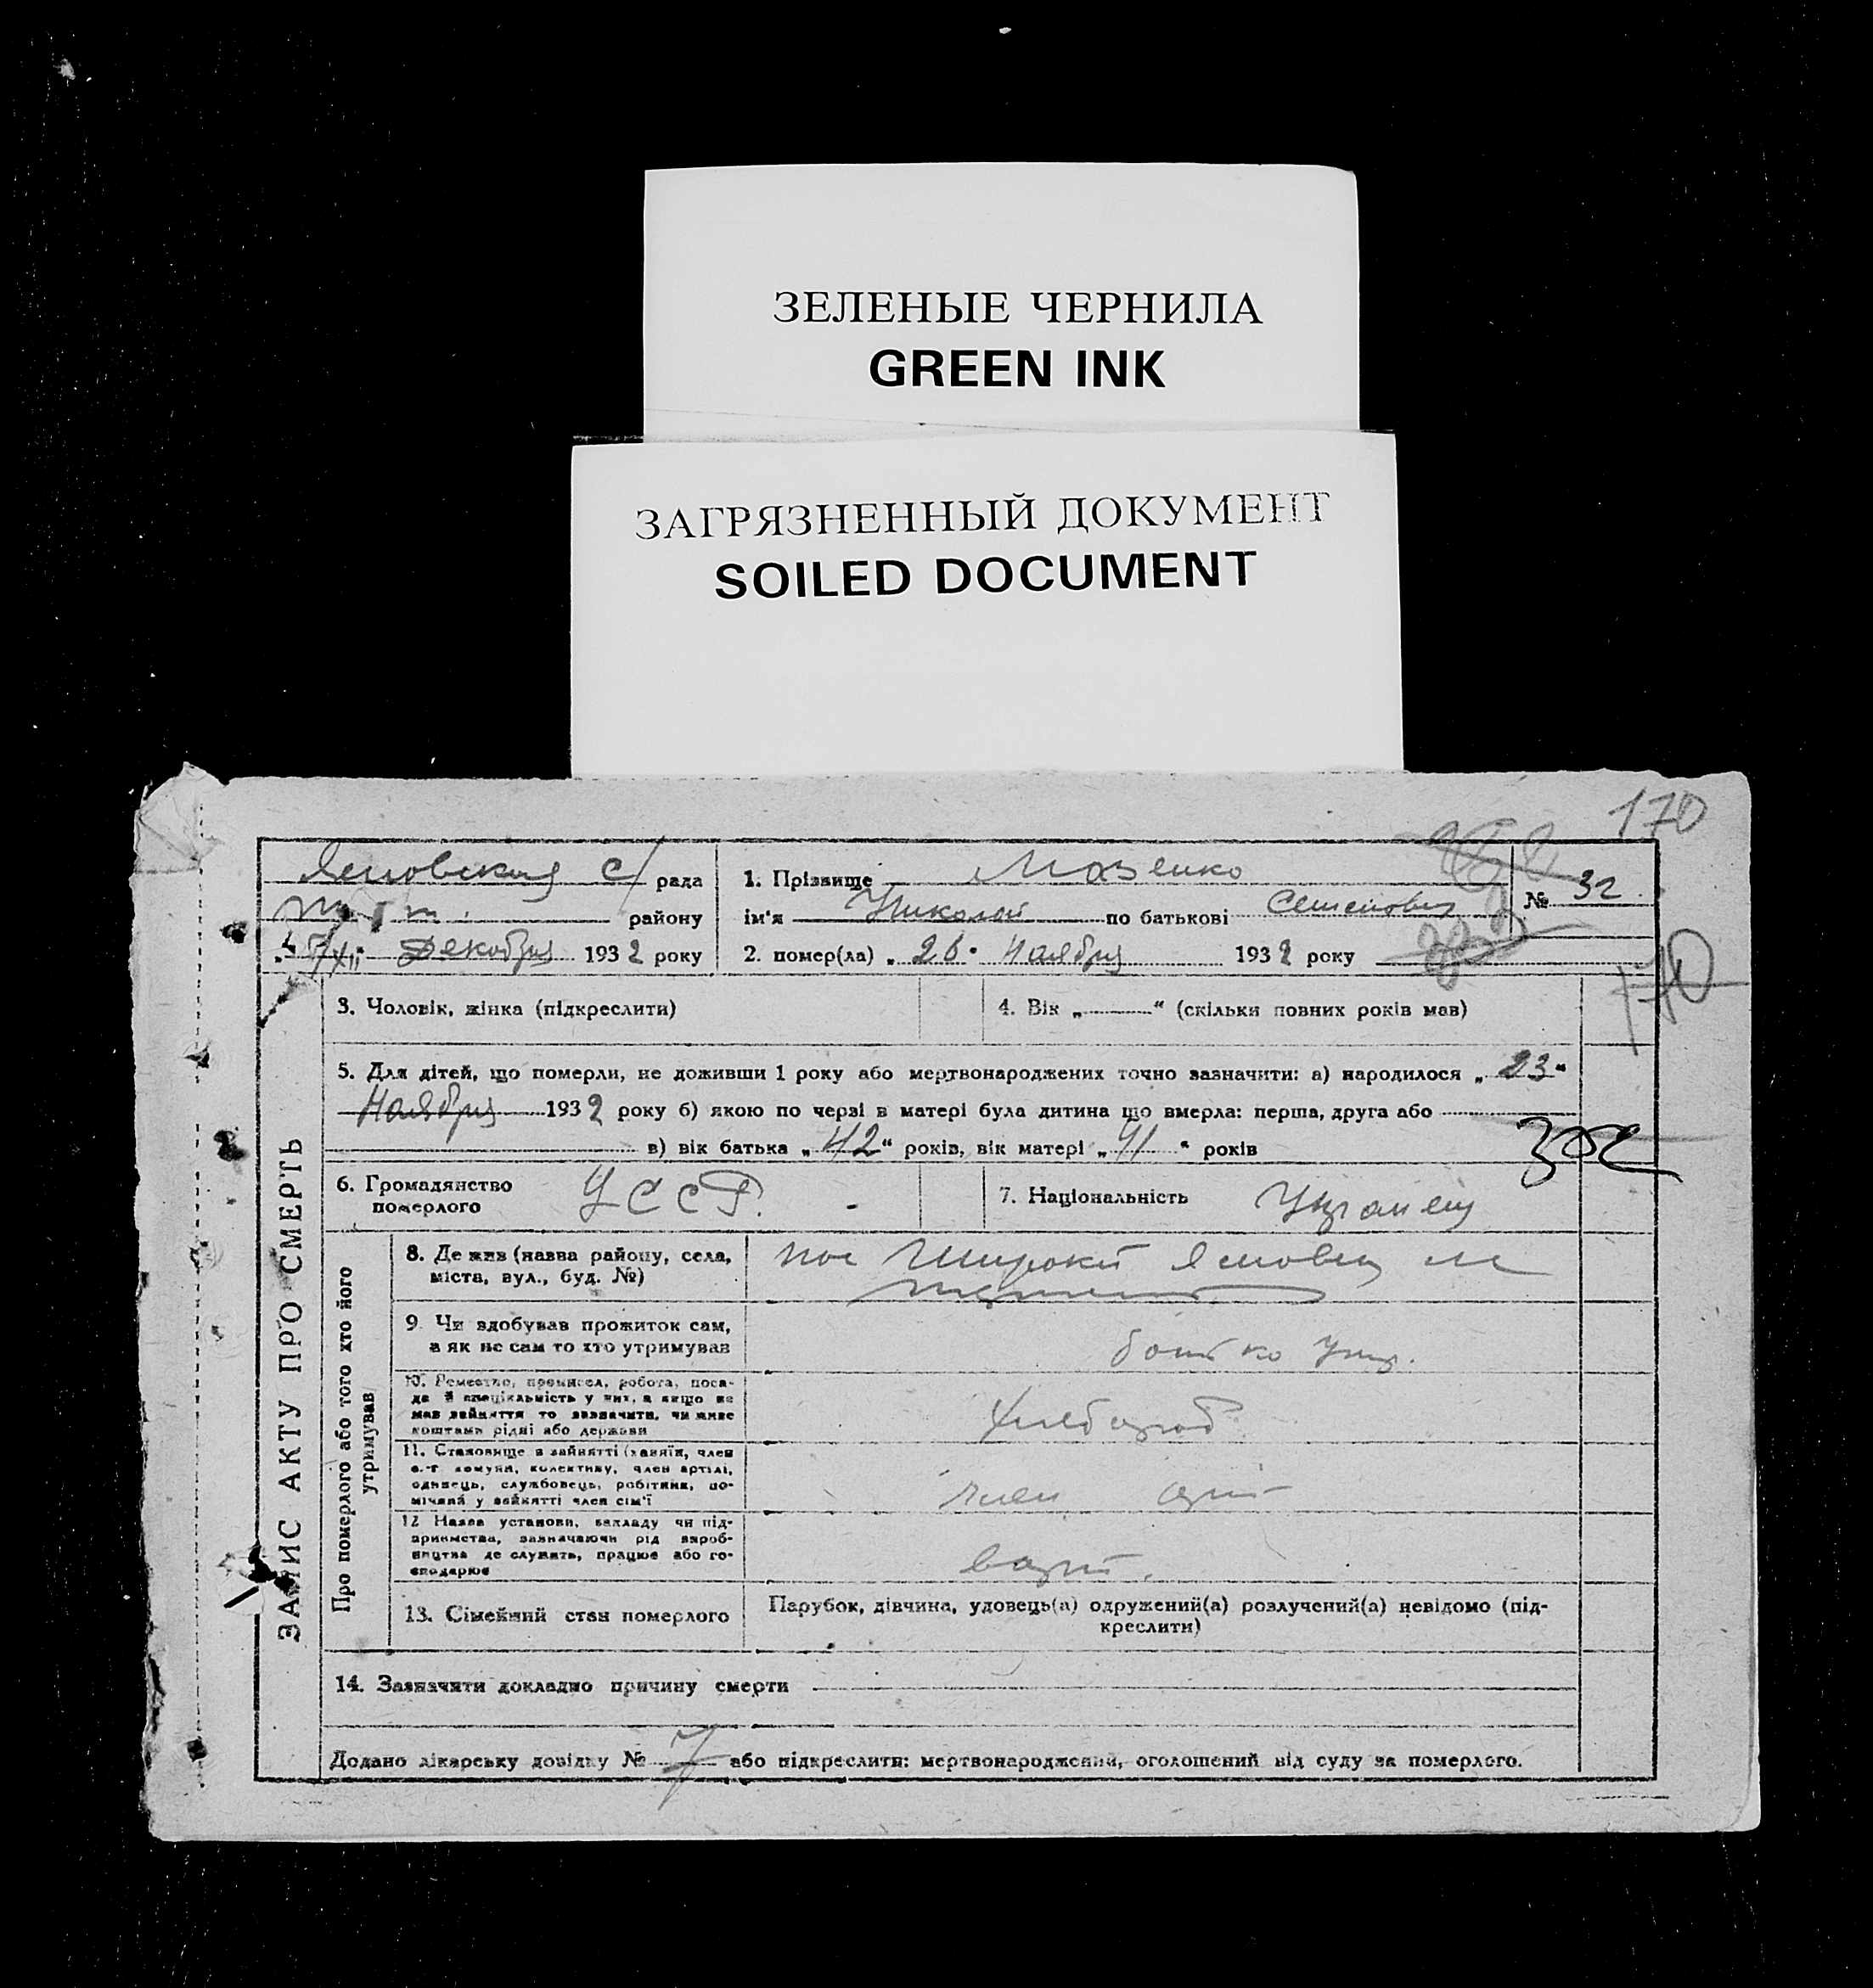 ЗЕЛЕНЫЕ ЧЕРНИЛА
GREEN INK
ЗАГРЯЗНЕННЫЙ ДОКУМЕНТ
SOILED DOCUMENT
170
с/рада
району
Декабря 1932 року
1. Прізвище Мазенко
ім'я Николай по батькові Семенович
№ 32
2. помер(ла) „26" Ноября 1932 року
170
ЗАПИС АКТУ ПРО СМЕРТЬ
3. Чоловік, жінка (підкреслити)
4. Вік „ “ (скільки повних років мав)
5. Для дітей, що померли, не доживши 1 року або мертвонароджених точно зазначити: а) народилося „23“
Ноября 1932 року б) якою по черзі в матері була дитина що вмерла: перша, друга або
в) вік батька „42“ років, вік матері „41“ років
6. Громадянство
померлого
УССР.
7. Національність Украинец
Про померлого або того хто його
утримував
8. Де жив (назва району, села,
міста, вул., буд. №)
пос Широкий
9. Чи здобував прожиток сам,
а як не сам то хто утримував
батько
10. Ремество, промисел, робота, поса-
да й спеціяльність у них, а якщо не
мав зайняття то зазначити, чи живе
коштами рідні або держави
Хлебороб
11. Становище в зайнятті (хазяїн, член
с.-г комуни, колективу, член артілі,
одинець, службовець, робітник, по-
мічний у зайнятті член сім'ї
член
12 Назва установи, закладу чи під-
приємства, зазначаючи рід вироб-
ництва де служить, працює або го-
сподарює
13. Сімейний стан померлого
Парубок, дівчина, удовець(а) одружений(а) розлучений(а) невідомо (під-
креслити)
14. Зазначити докладно причину смерти
Додано лікарську довідку № 7 або підкреслити: мертвонароджений, оголошений від суду за померлого.